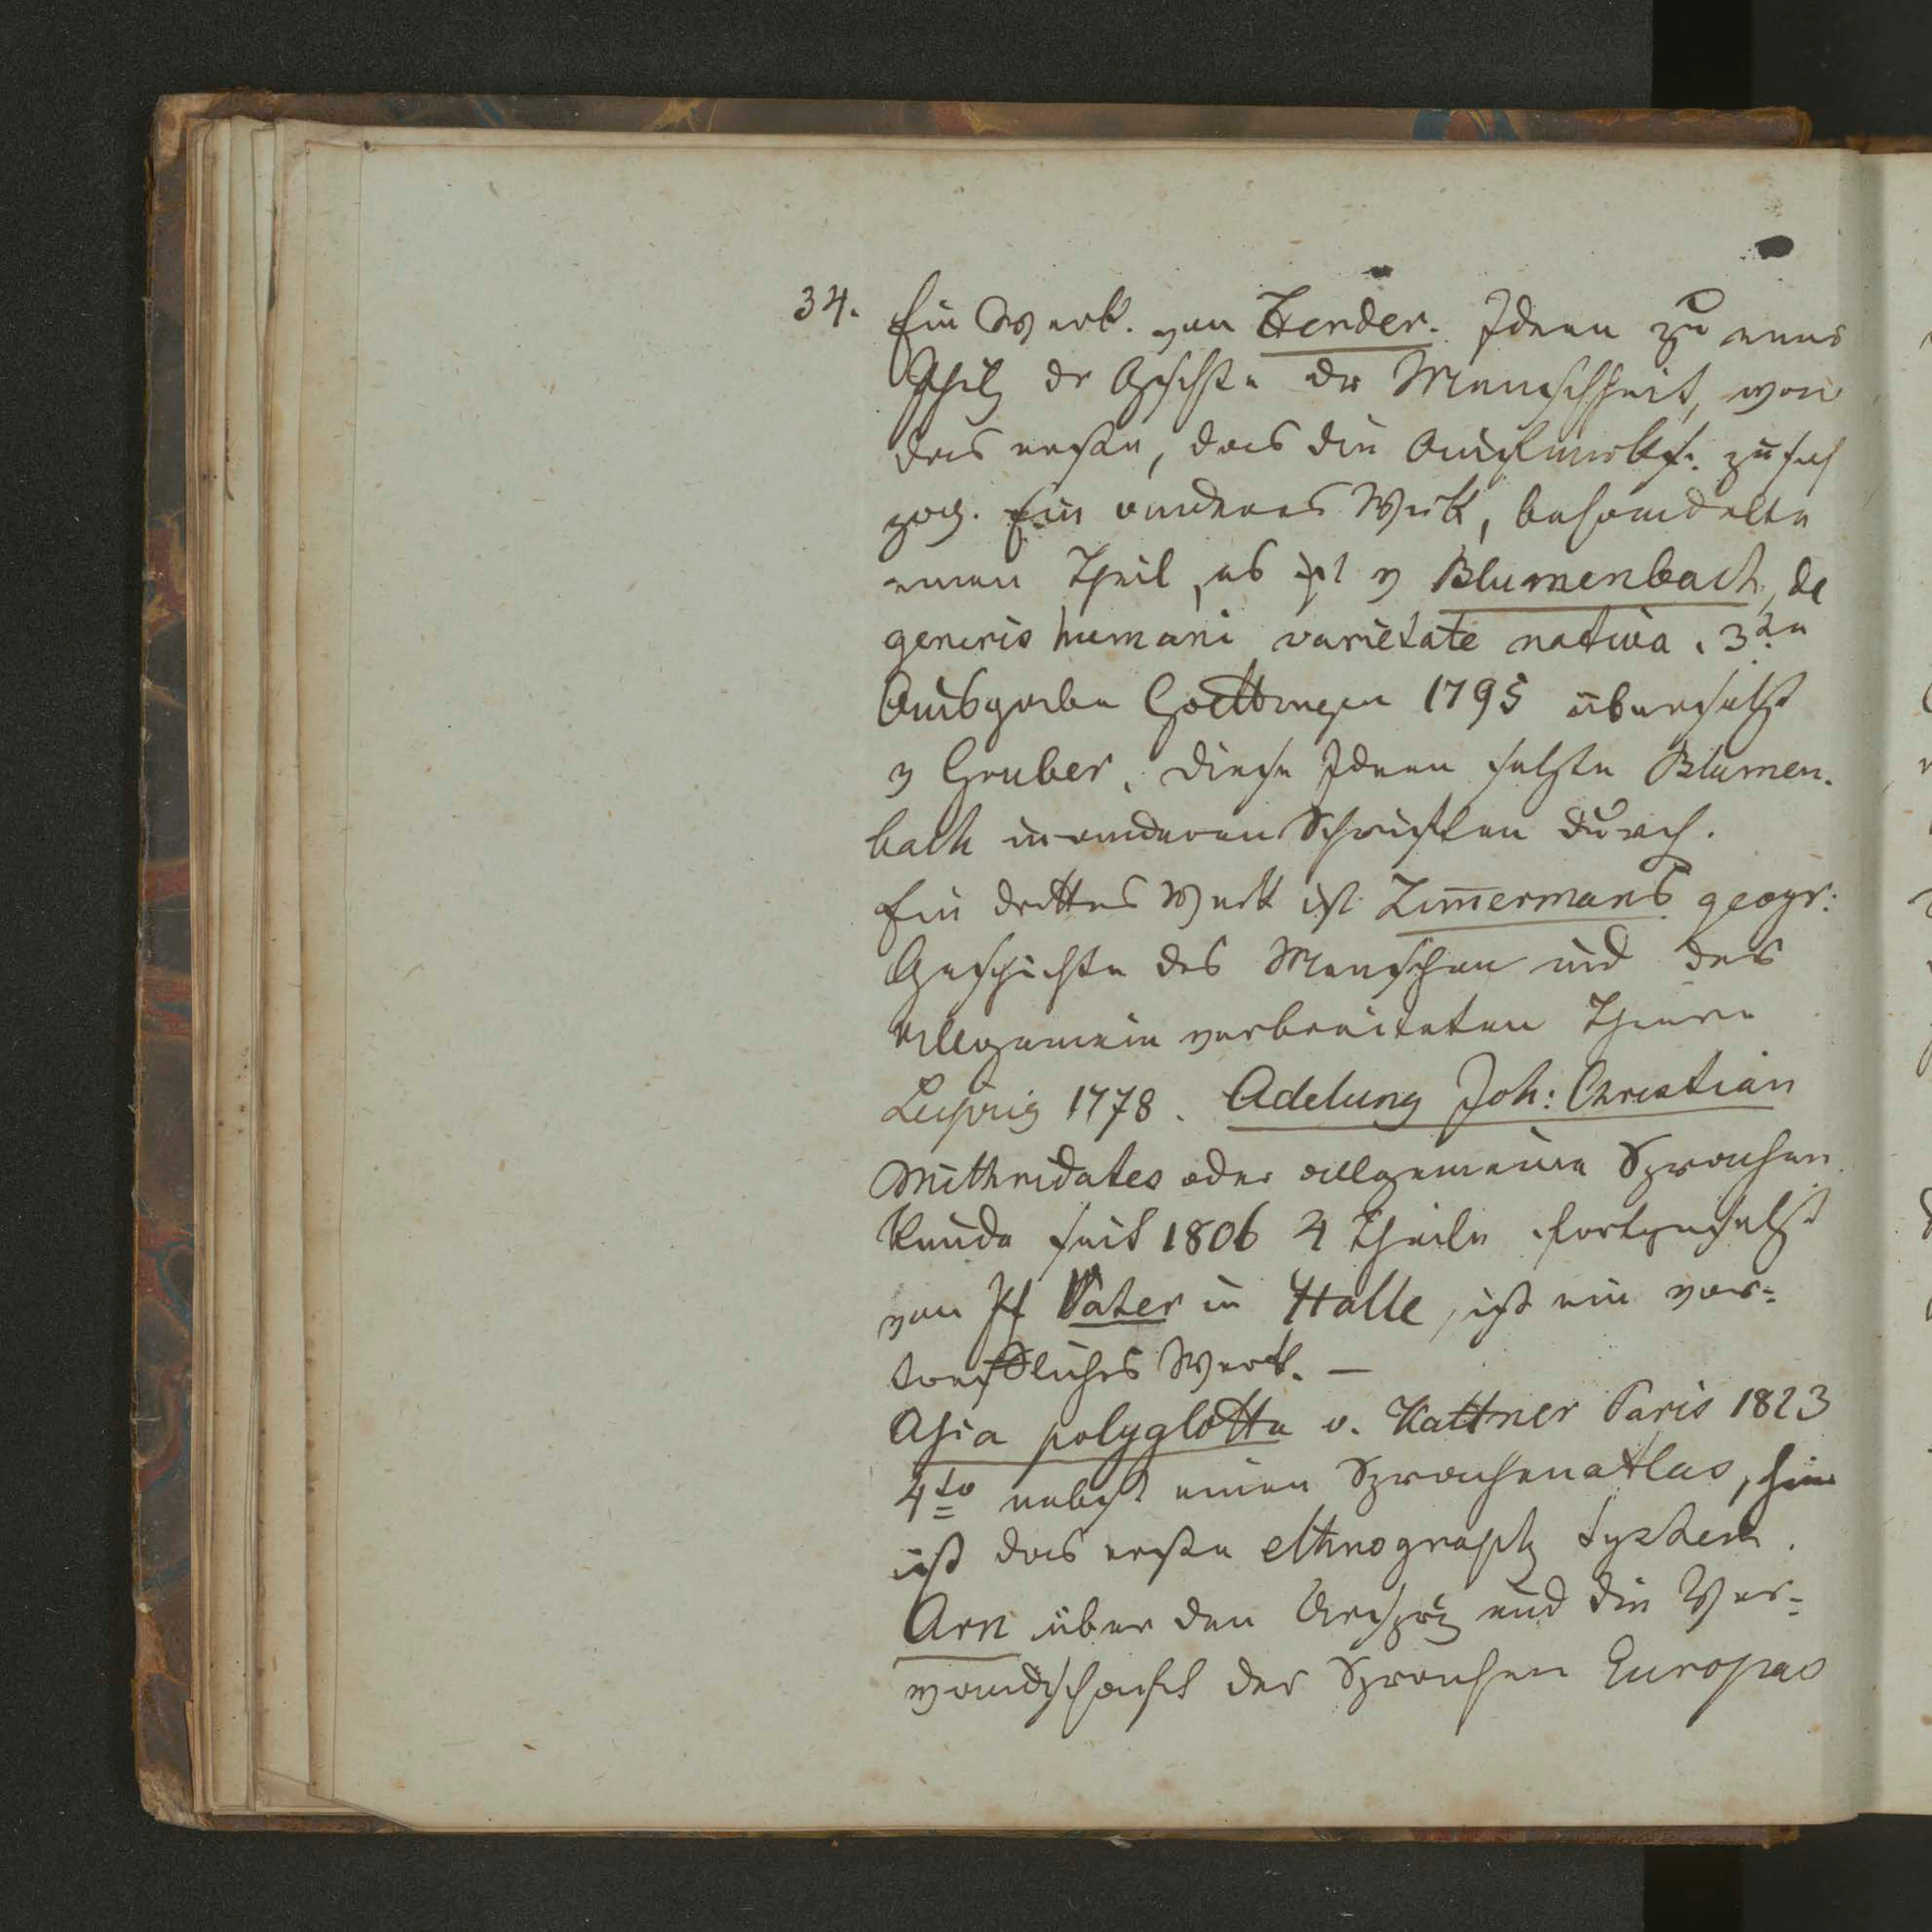 34. Ein Werk. von Herder. Ideen zu einer
Philz der Geschte der Menschheit, war
das erste, das die Aufmerks. zu sich
zog. Ein anderes Werk, behandelte
einen Theil, es ist v Blumenbach, de
generis humani varietate nativa. 3te
Ausgabe Goettingen 1795 übersetzt
v Gruber. Diese Ideen setzte Blumen-
bach in anderen Schriften durch.
Ein drittes Werk ist Zim̅ermans geogr:
Geschichte des Menschen und der
allgemein verbreiteten Thiere
Leipzig 1778. Adelung Joh: Christian
Mithridates oder allgemeine Sprachen
kunde seit 1806 4 Theile fortgesetzt
von Vater in Halle, ist ein vor=
treffliches Werk. —
Asia polyglotta v. Kattner Paris 1823
4to nebst einen Sprachenatlas,
ist das erste ethnograph System.
Arn über den und die Ver=
wandschaft der Sprachen Europas